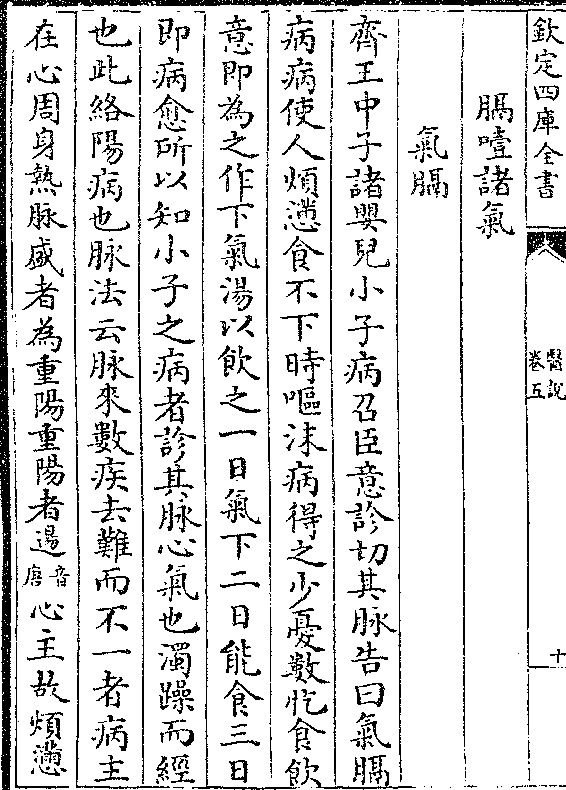 欽定四庫全書
醫說
卷五
十
膈噎諸氣
氣膈
齊王中子諸嬰兒小子病召臣意診切其脉告曰氣膈
病病使人煩懣食不下時嘔沫病得之少憂數忔食飲
意即為之作下氣湯以飲之一日氣下二日能食三日
即病愈所以知小子之病者診其脉心氣也濁躁而經
也此絡陽病也脉法云脉來數疾去難而不一者病主
在心周身熱脉盛者為重陽重陽者逿音唐心主故煩懣